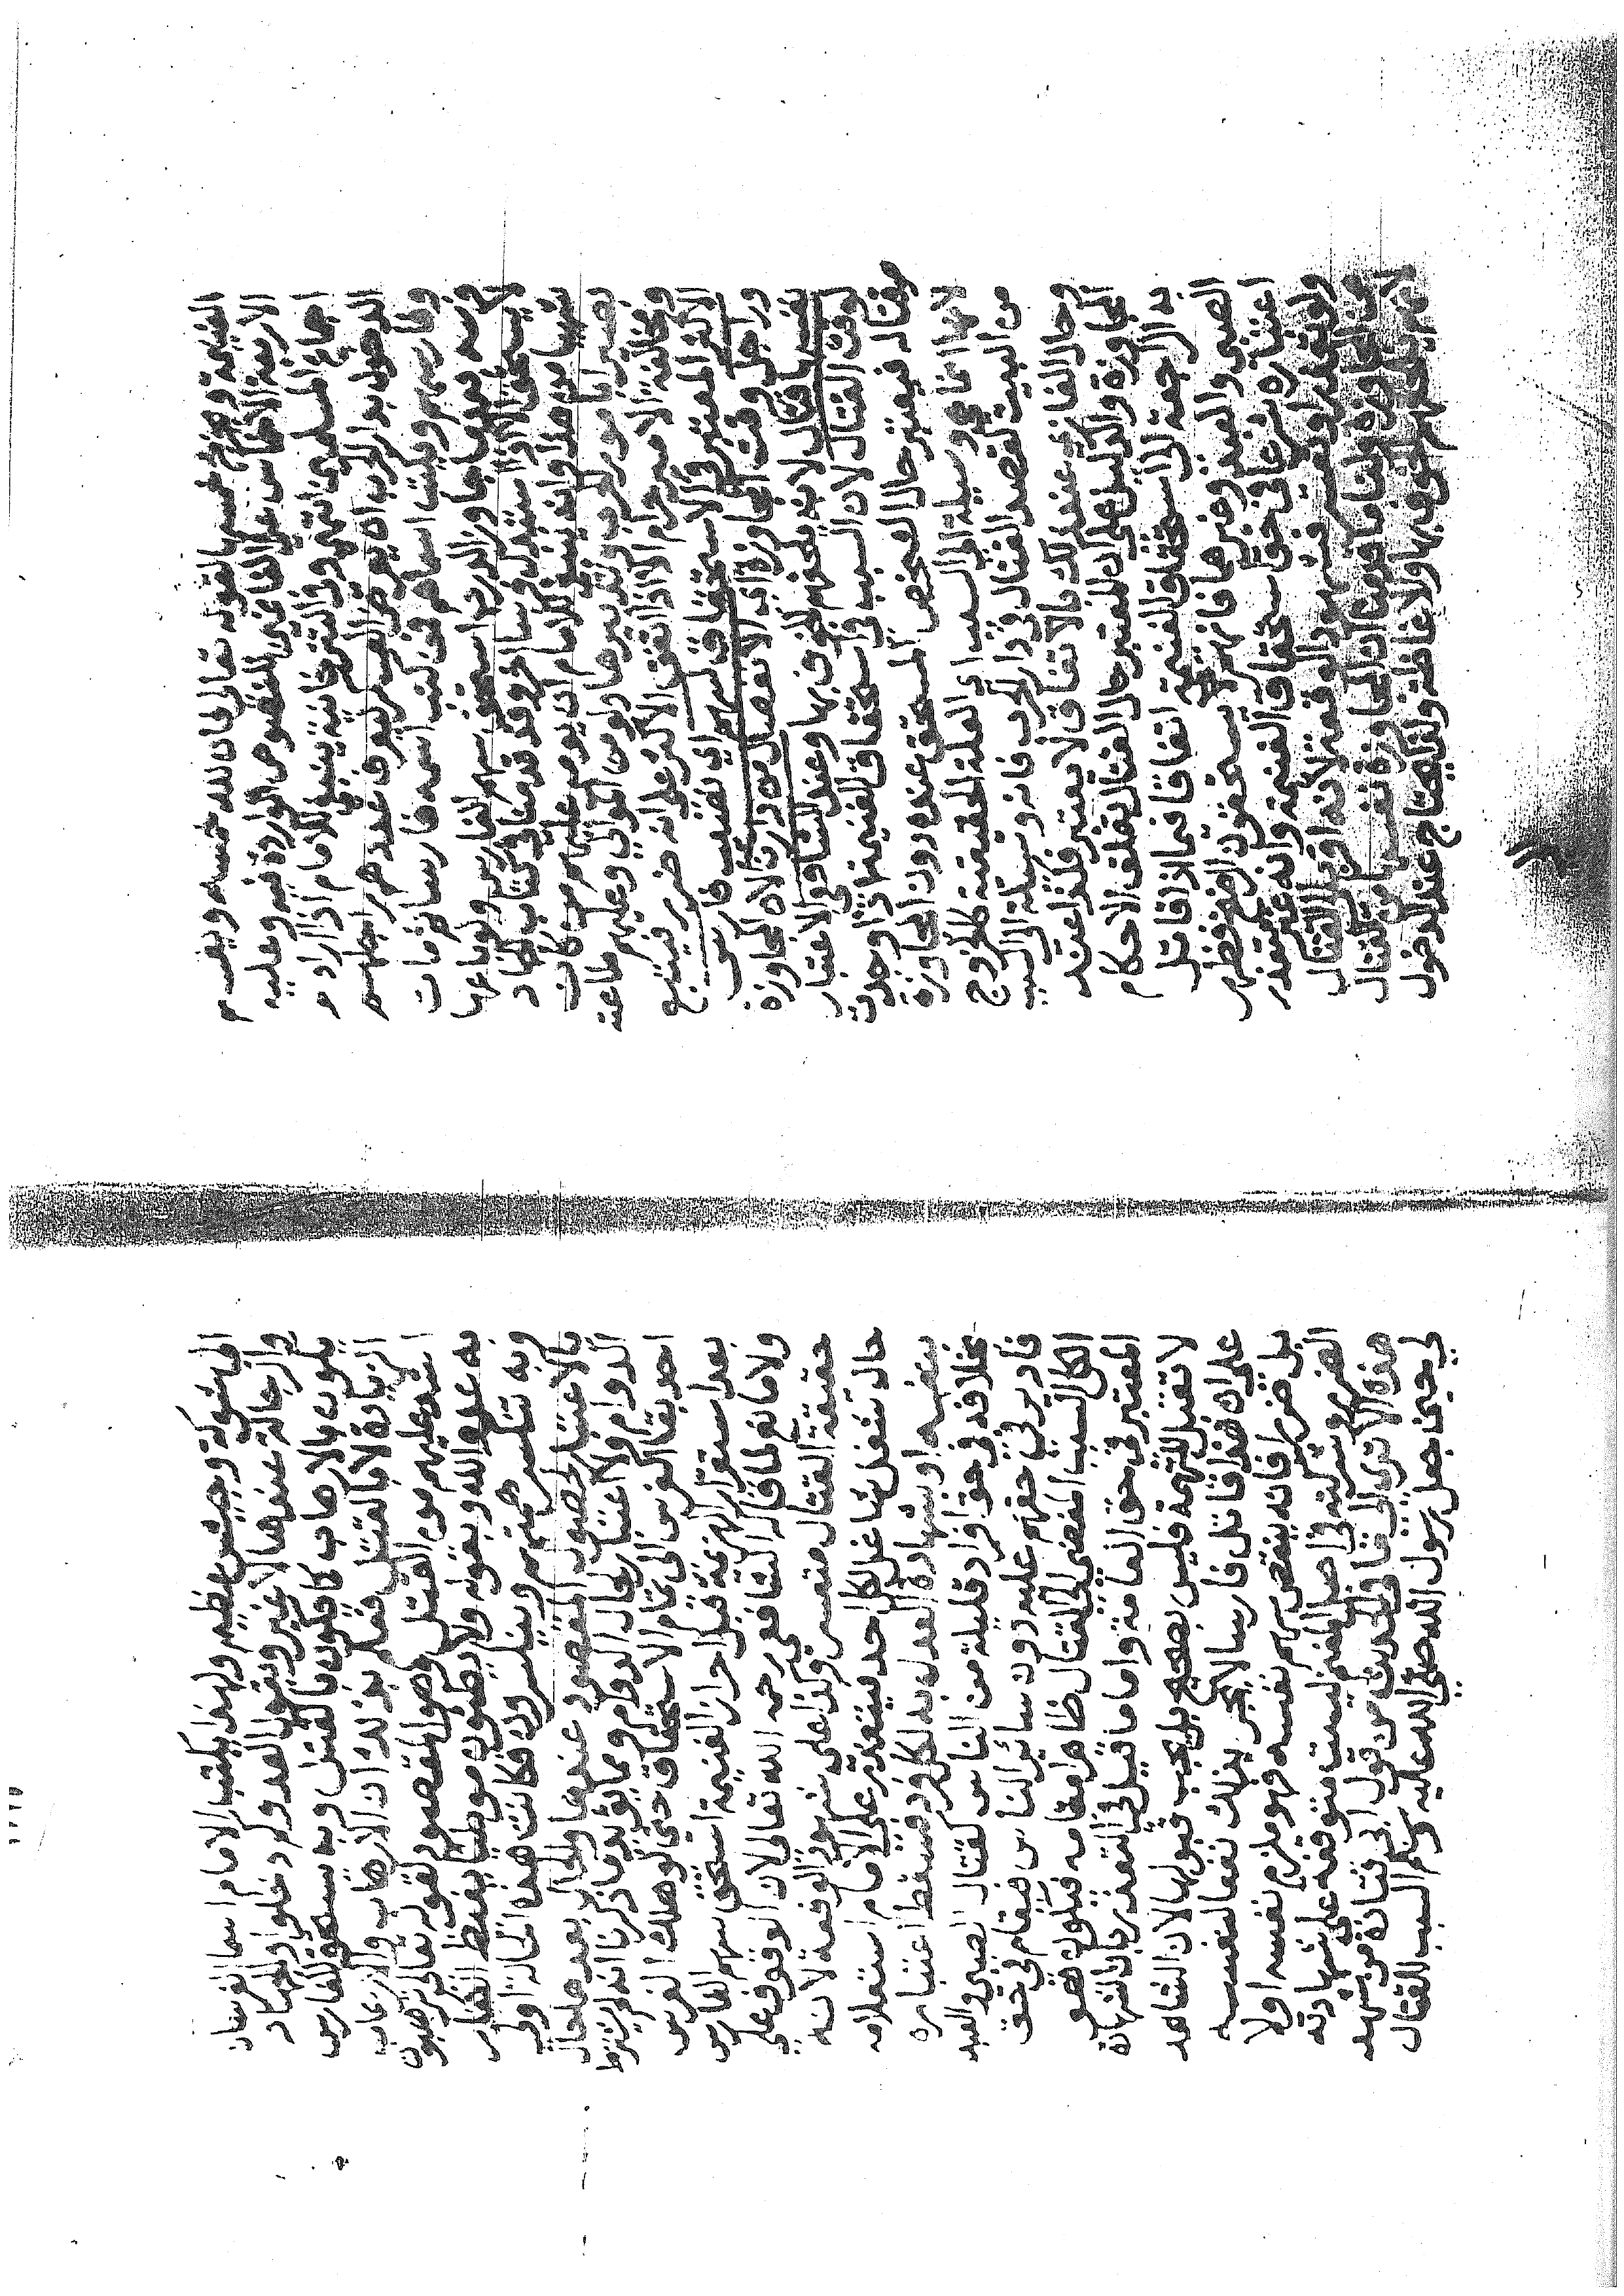 الغنيمة ويخرج خمسها لقوله تعالى فان لله خمسه ويقسم
الاربعة الاخماس بين الغانمين للنصوص الواردة فيه وعليه
اجماع المسلمين انتهى وفي التترخانية ينبغي للامام اذا اراد
الدخول بدار الحرب ان يعرض العسكر ليعرف عددهم راجلهم
وفارسهم ويكتب اسماءهم فمن كتب اسمه فارسا ثم مات
فرسه بعد ما جاوز الدرب استحق سهم الفارس ولو باعها
لا يستحق الا اذا استبدل فرسا اخر وقد قدمنا في كتاب الجهاد
شيئا من هذا وانه ينبغي للامام ان يؤمر عليهم من كان
بصيرا بامور الحرب وتدبيرها ولو من الموالي وعليهم طاعته
ومخالفة الامير حرام الا اذا اتفق الاكثر على انه ضرر فيتبع
الاكثر المعتبر في الاستحقاق لسهم اي نصيب فارس
وراجل وقت المجاوزة اي الانفصال من دارنا لان المجاوزة
نفسها قتال لانه يلحقهم الخوف بها وعند الشافعي الاعتبار
لوقت القتال لان السبب في استحقاق الغنيمة اذا وجدت
القتال فيعتبر حال الشخص المستحق عنده دون المجاوزة
لانها انما هي وسيلة الى السبب اي العلة الحقيقية كالخروج
من البيت لقصد القتال في دار الحرب فانه وسيلة الى السبب
وحال الغازي عند ذلك بالاتفاق لا يعتبر فكذا عند
المجاوزة والدليل على ان المعتبر حال القتال تعلق الاحكام
به الراجعة الى استحقاق الغنيمة اتفاقا فيما اذا قاتل
الصبي والعبد وغيرهما فانهم يستحقون الرضخ فظهر
اعتباره شرعا في حق استحقاق الغنيمة وانه غير متعذر
ولو تعذر او تعسر فشهود الوقعة لانه اقرب الى القتال
من المجاوزة ولنا ما قدمنا ان المجاوزة نفسها من القتال
لانه يلحقهم الخوف بها ولاغاظة ولذا يحتاج عند الدخول
الى شوكة وجيش عظيم ولهذا يكتب الامام اسماء الفرسان
والرجالة عندها لا غير ويقول العدو كم دخلوا والجهاد
يكون بالارهاب كما يكون بالقتل وبه يستحق الفارس
الزيادة لا بالقتل فعلم بذلك ان الارهاب والارعاب
اشد عليهم من القتل وهو المقصود لقوله تعالى ترهبون
به عدو الله وبقوله ولا يطئون موطئا يغيظ الكفار
وبه تنكسر همتهم وينكسرون فكانت هذه الحالة اولى
بالاعتبار لحصول المقصود عندها والحال بعدها حال
الدوام ولا اعتبار بحال الدوام ومما يؤيد ما ذكرنا انه لم يشترط
احد بقاء الفرس الى تمام الاستحقاق حتى لو هلك الفرس
بعد استقرار الهزيمة قبل احراز الغنيمة استحق سهم الفارس
ولا مانع لما قاله الشافعي رحمه الله تعالى لان الوقوف على
حقيقة القتال متعسر وكذا على شهود الوقعة لانه
حال شغل شاغل لكل احد فيتعذر على الامام استعلامه
بنفسه او بشهادة العدول بذلك فيسقط اعتباره
بخلافه في حق افراد قليلة من الناس كقتال الصبي والعبد
فادير في حقهم عليه دون سائر الناس فيقام في حق
الكل السبب المفضي الى القتال ظاهرا مقامه فيكون هو
المعتبر في حق العامة واما ما قيل في التعذر بان الشهادة
لا تقبل للتهمة فليس بصحيح بل يجب قبولها لان الشاهد
على ان هذا قاتل فارسا لا يجر بذلك نفعا لنفسه
بل ضررا فانه ينقص سهم نفسه فهو ملزم نفسه اولا
الضرر وشركته في اصل المغنم ليست متوقفة على شهادته
هذه الا ترى الى ما في الحديث من قول ابي قتادة من يشهد
لي حين جعل رسول الله صلى الله عليه وسلم السلب للقتال